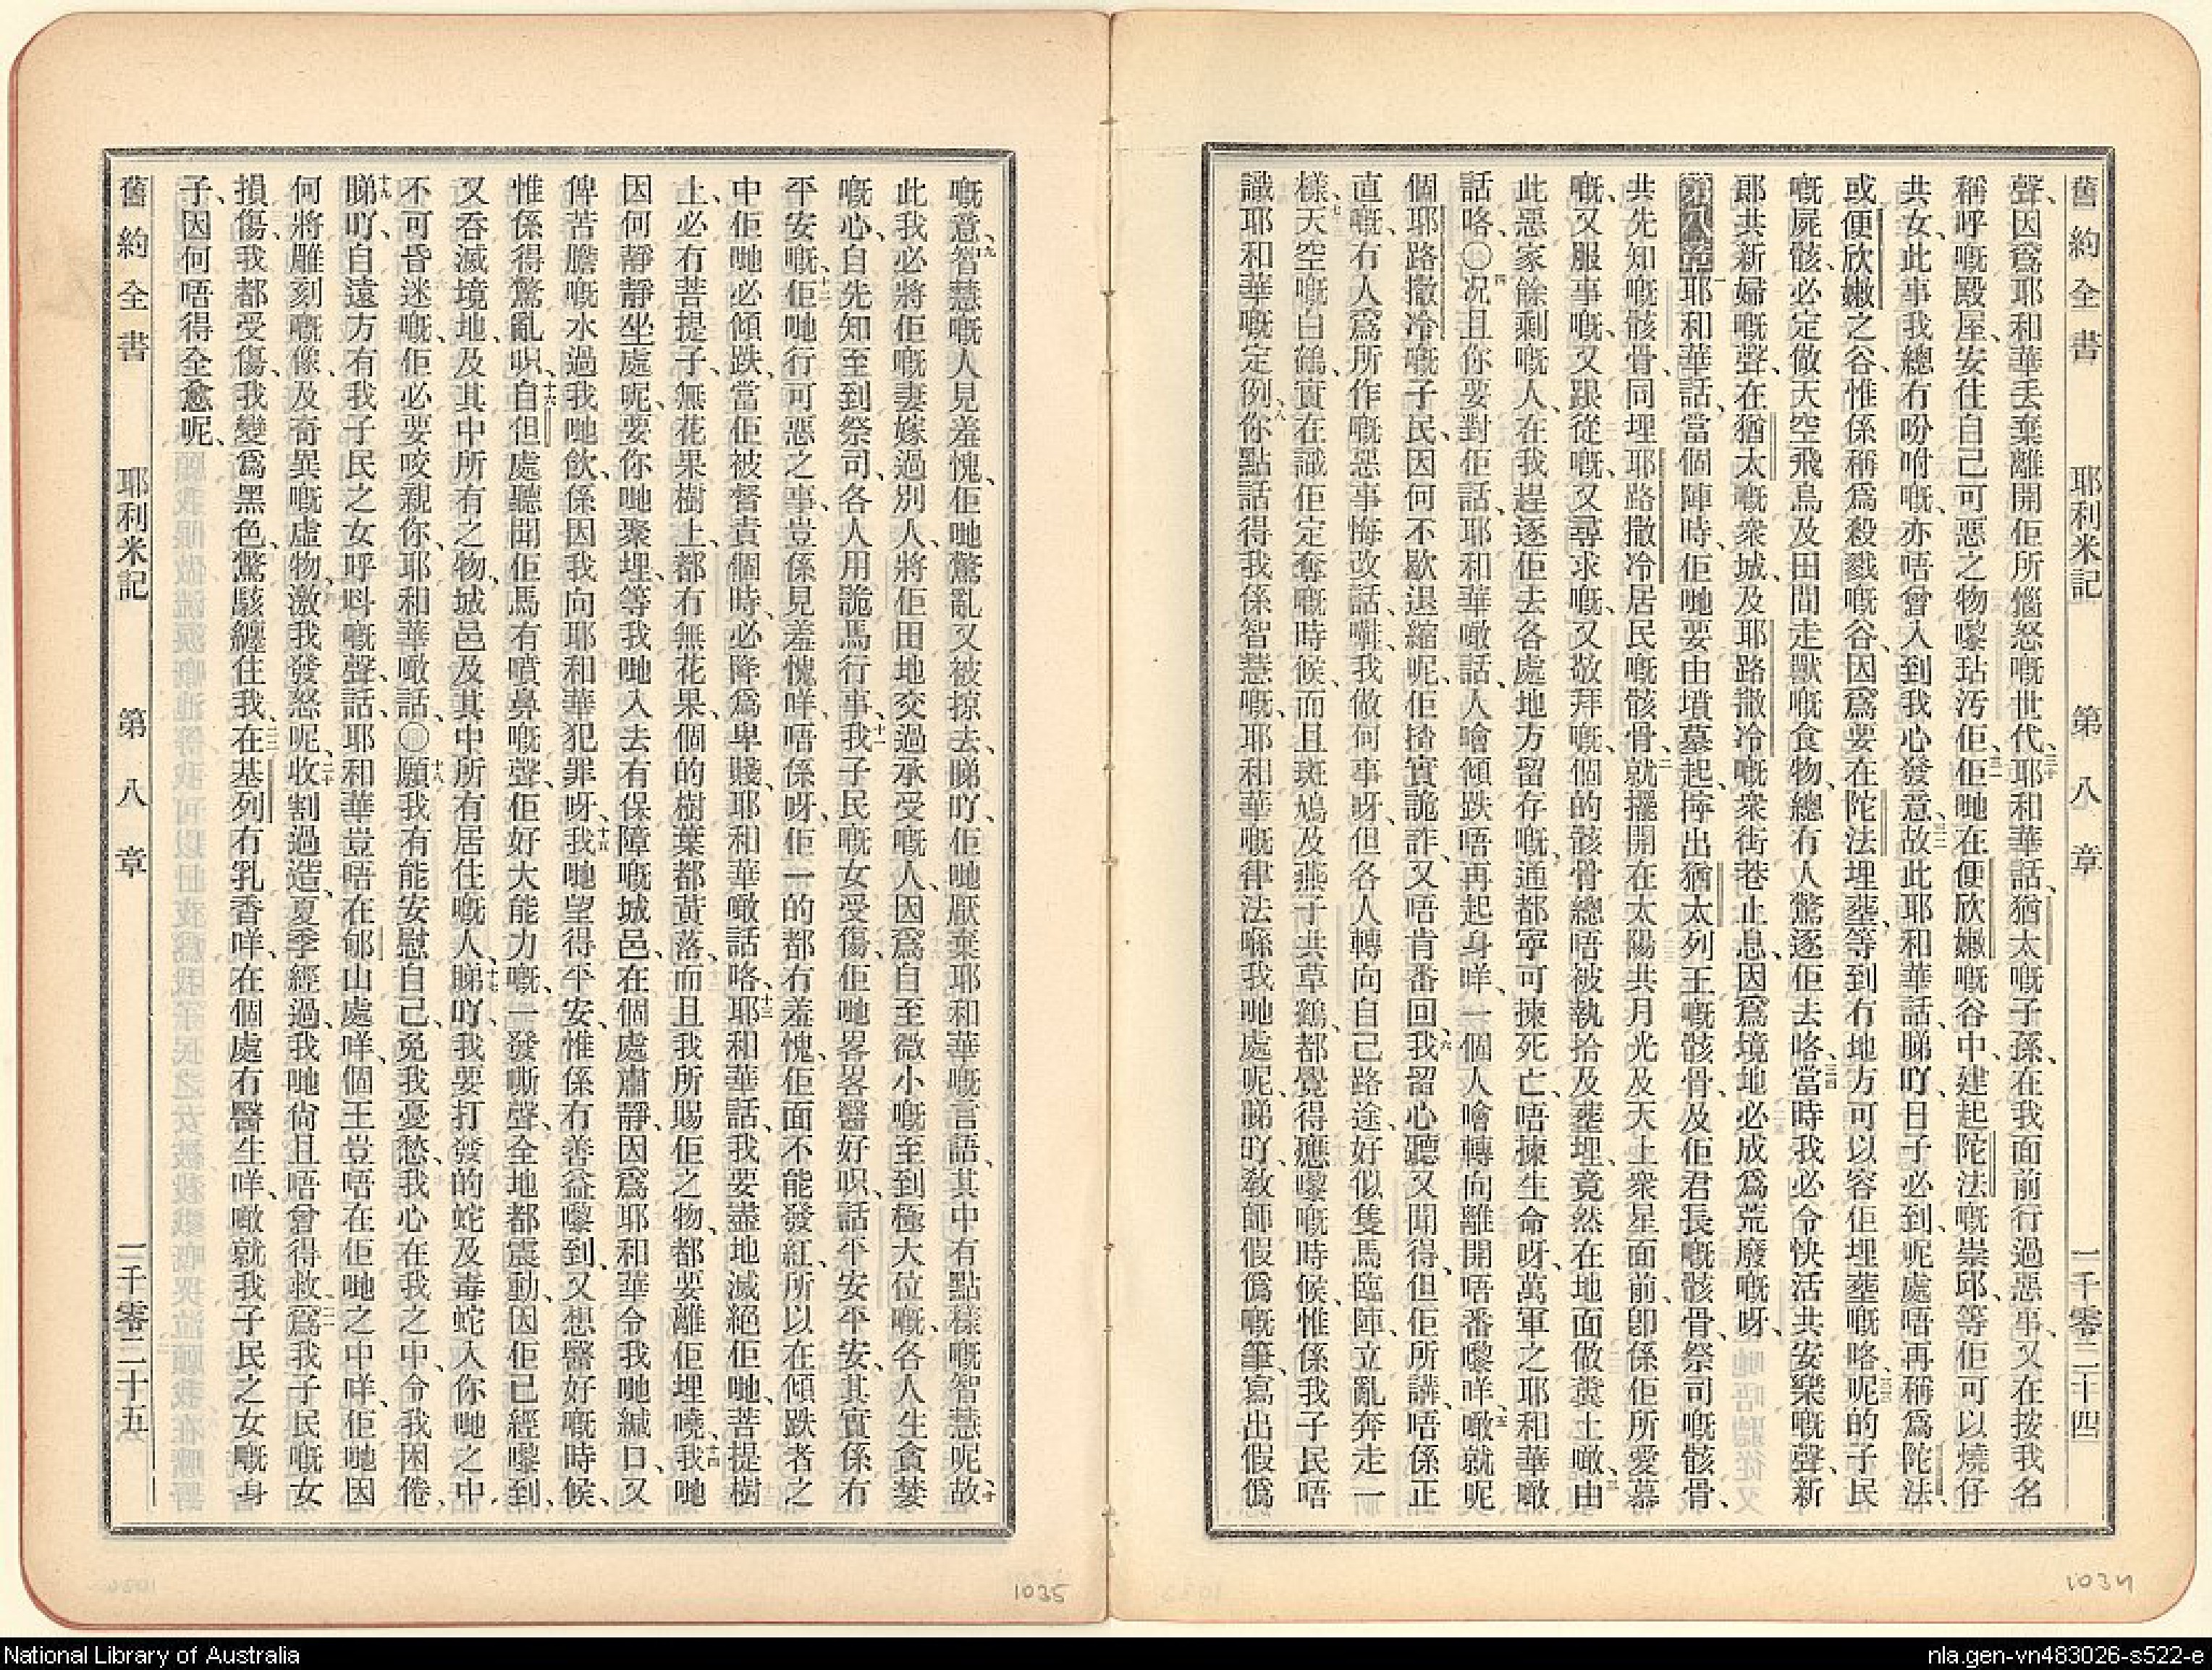 舊約全書 耶利米記 第八章 一千零二十四
聲、因爲耶和華丢棄離開佢所惱怒嘅世代、三十耶和華話、猶太嘅子孫、在我面前行過惡事、又在按我名
稱呼嘅殿屋、安住自己可惡之物嚟玷汚佢、三一佢哋在便欣嫩嘅谷中、建起陀法嘅崇邱、等佢可以燒仔
共女、此事我總冇吩咐嘅、亦唔曾入到我心發意、三二故此耶和華話、睇吖、日子必到、呢處唔再稱爲陀法、
或便欣嫩之谷、惟係稱爲殺戮嘅谷、因爲要在陀法埋葬、等到冇地方可以容佢埋葬嘅咯、三三呢的子民
嘅屍骸、必定做天空飛鳥及田間走獸嘅食物、總冇人驚逐佢去咯、三四當時我必令快活共安樂嘅聲、新
郞共新婦嘅聲、在猶太嘅衆城、及耶路撒冷嘅衆街巷止息、因爲境地必成爲荒廢嘅呀、
第八章 一耶和華話、當個陣時、佢哋要由墳墓起、擰出猶太列王嘅骸骨、及佢君長嘅骸骨、祭司嘅骸骨、
共先知嘅骸骨、同埋耶路撒冷居民嘅骸骨、二就擺開在太陽共月光及天上衆星面前、卽係佢所愛慕
嘅、又服事嘅、又跟從嘅、又尋求嘅、又敬拜嘅、個的骸骨總唔被執拾及葬埋、竟然在地面做糞土噉、三由
此惡家餘剩嘅人、在我趕逐佢去各處地方留存嘅、通都寧可揀死亡、唔揀生命呀、萬軍之耶和華噉
話咯、○四况且你要對佢話、耶和華噉話、人噲傾跌唔再起身咩、一個人噲轉向離開唔番嚟咩、五噉就呢
個耶路撒冷嘅子民、因何不歇退縮呢、佢揸實詭詐、又唔肯番回、六我留心聽、又聞得、但佢所講、唔係正
直嘅、冇人爲所作嘅惡事悔改話、嗱、我做何事呀、但各人轉向自己路途、好似隻馬臨陣、立亂奔走一
樣、七天空嘅白鶴、實在識佢定奪嘅時候、而且斑鳩及燕子共草鶴、都覺得應嚟嘅時候、惟係我子民唔
識耶和華嘅定例、八你點話得我係智慧嘅、耶和華嘅律法喺我哋處呢、睇吖、敎師假僞嘅筆、寫出假僞
嘅意、九智慧嘅人見羞愧、佢哋驚亂又被掠去、睇吖、佢哋厭棄耶和華嘅言語、其中有點樣嘅智慧呢、十故
此我必將佢嘅妻嫁過別人、將佢田地交過承受嘅人、因爲自至微小嘅至到極大位嘅、各人生貪婪
嘅心、自先知至到祭司、各人用詭馬行事、十一我子民嘅女受傷、佢哋畧畧醫好呮、話平安平安、其實係冇
平安嘅、十二佢哋行可惡之事、豈係見羞愧咩、唔係呀、佢一的都冇羞愧、佢面不能發紅、所以在傾跌者之
中佢哋必傾跌、當佢被督責個時、必降爲卑賤、耶和華噉話咯、十三耶和華話、我要盡地滅絕佢哋、菩提樹
上、必冇菩提子、無花果樹上、都冇無花果、個的樹葉都黃落、而且我所賜佢之物、都要離佢埋曉、十四我哋
因何靜靜坐處呢、要你哋聚埋、等我哋入去有保障嘅城邑、在個處肅靜、因爲耶和華令我哋緘口、又
俾苦膽嘅水過我哋飮、係因我向耶和華犯罪呀、十五我哋望得平安、惟係冇善益嚟到、又想醫好嘅時候、
惟係得驚亂呮、十六自但處聽聞佢馬有噴鼻嘅聲、佢好大能力嘅、一發嘶聲、全地都震動、因佢已經嚟到、
又吞滅境地、及其中所有之物、城邑及其中所有居住嘅人、十七睇吖、我要打發的蛇及毒蛇入你哋之中、
不可昏迷嘅、佢必要咬親你、耶和華噉話、○十八願我有能安慰自己、免我憂愁、我心在我之中、令我困倦、
十九睇吖、自遠方有我子民之女呼呌嘅聲、話、耶和華豈唔在郇山處咩、個王豈唔在佢哋之中咩、佢哋因
何將雕刻嘅像、及奇異嘅虛物、激我發怒呢、二十收割過造、夏季經過、我哋尙且唔曾得救、二一爲我子民嘅女
損傷、我都受傷、我變爲黑色、驚駭纏住我、二二在基列冇乳香咩、在個處冇醫生咩、噉就我子民之女嘅身
子、因何唔得全愈呢、
舊約全書 耶利米記 第八章 一千零二十五
1035
1034
National Library of Australia
nla.gen-vn483026-s522-e